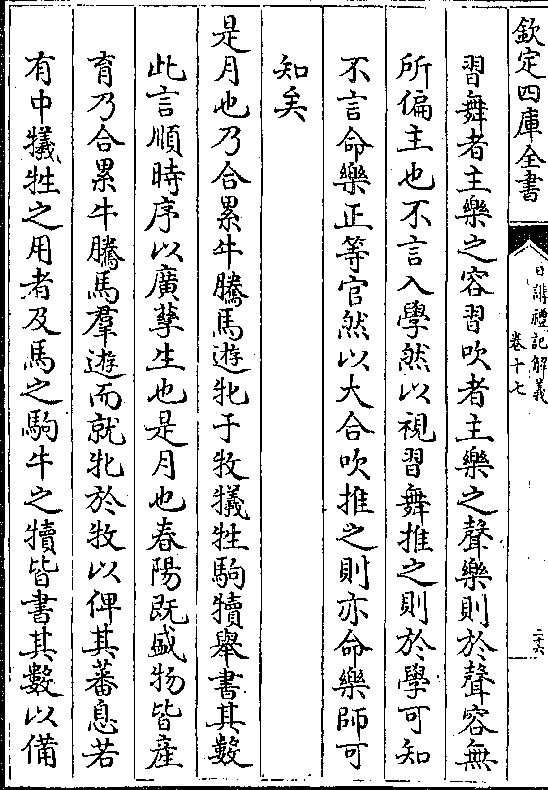 欽定四庫全書
日講禮記解義
卷十七
二十六
習舞者主樂之容習吹者主樂之聲樂則於聲容無
所偏主也不言入學然以視習舞推之則於學可知
不言命樂正等官然以大合吹推之則亦命樂師可
知矣
是月也乃合累牛騰馬遊牝于牧犧牲駒犢舉書其數
此言順時序以廣孳生也是月也春陽既盛物皆產
育乃合累牛騰馬羣遊而就牝於牧以俾其蕃息若
有中犧牲之用者及馬之駒牛之犢皆書其數以備